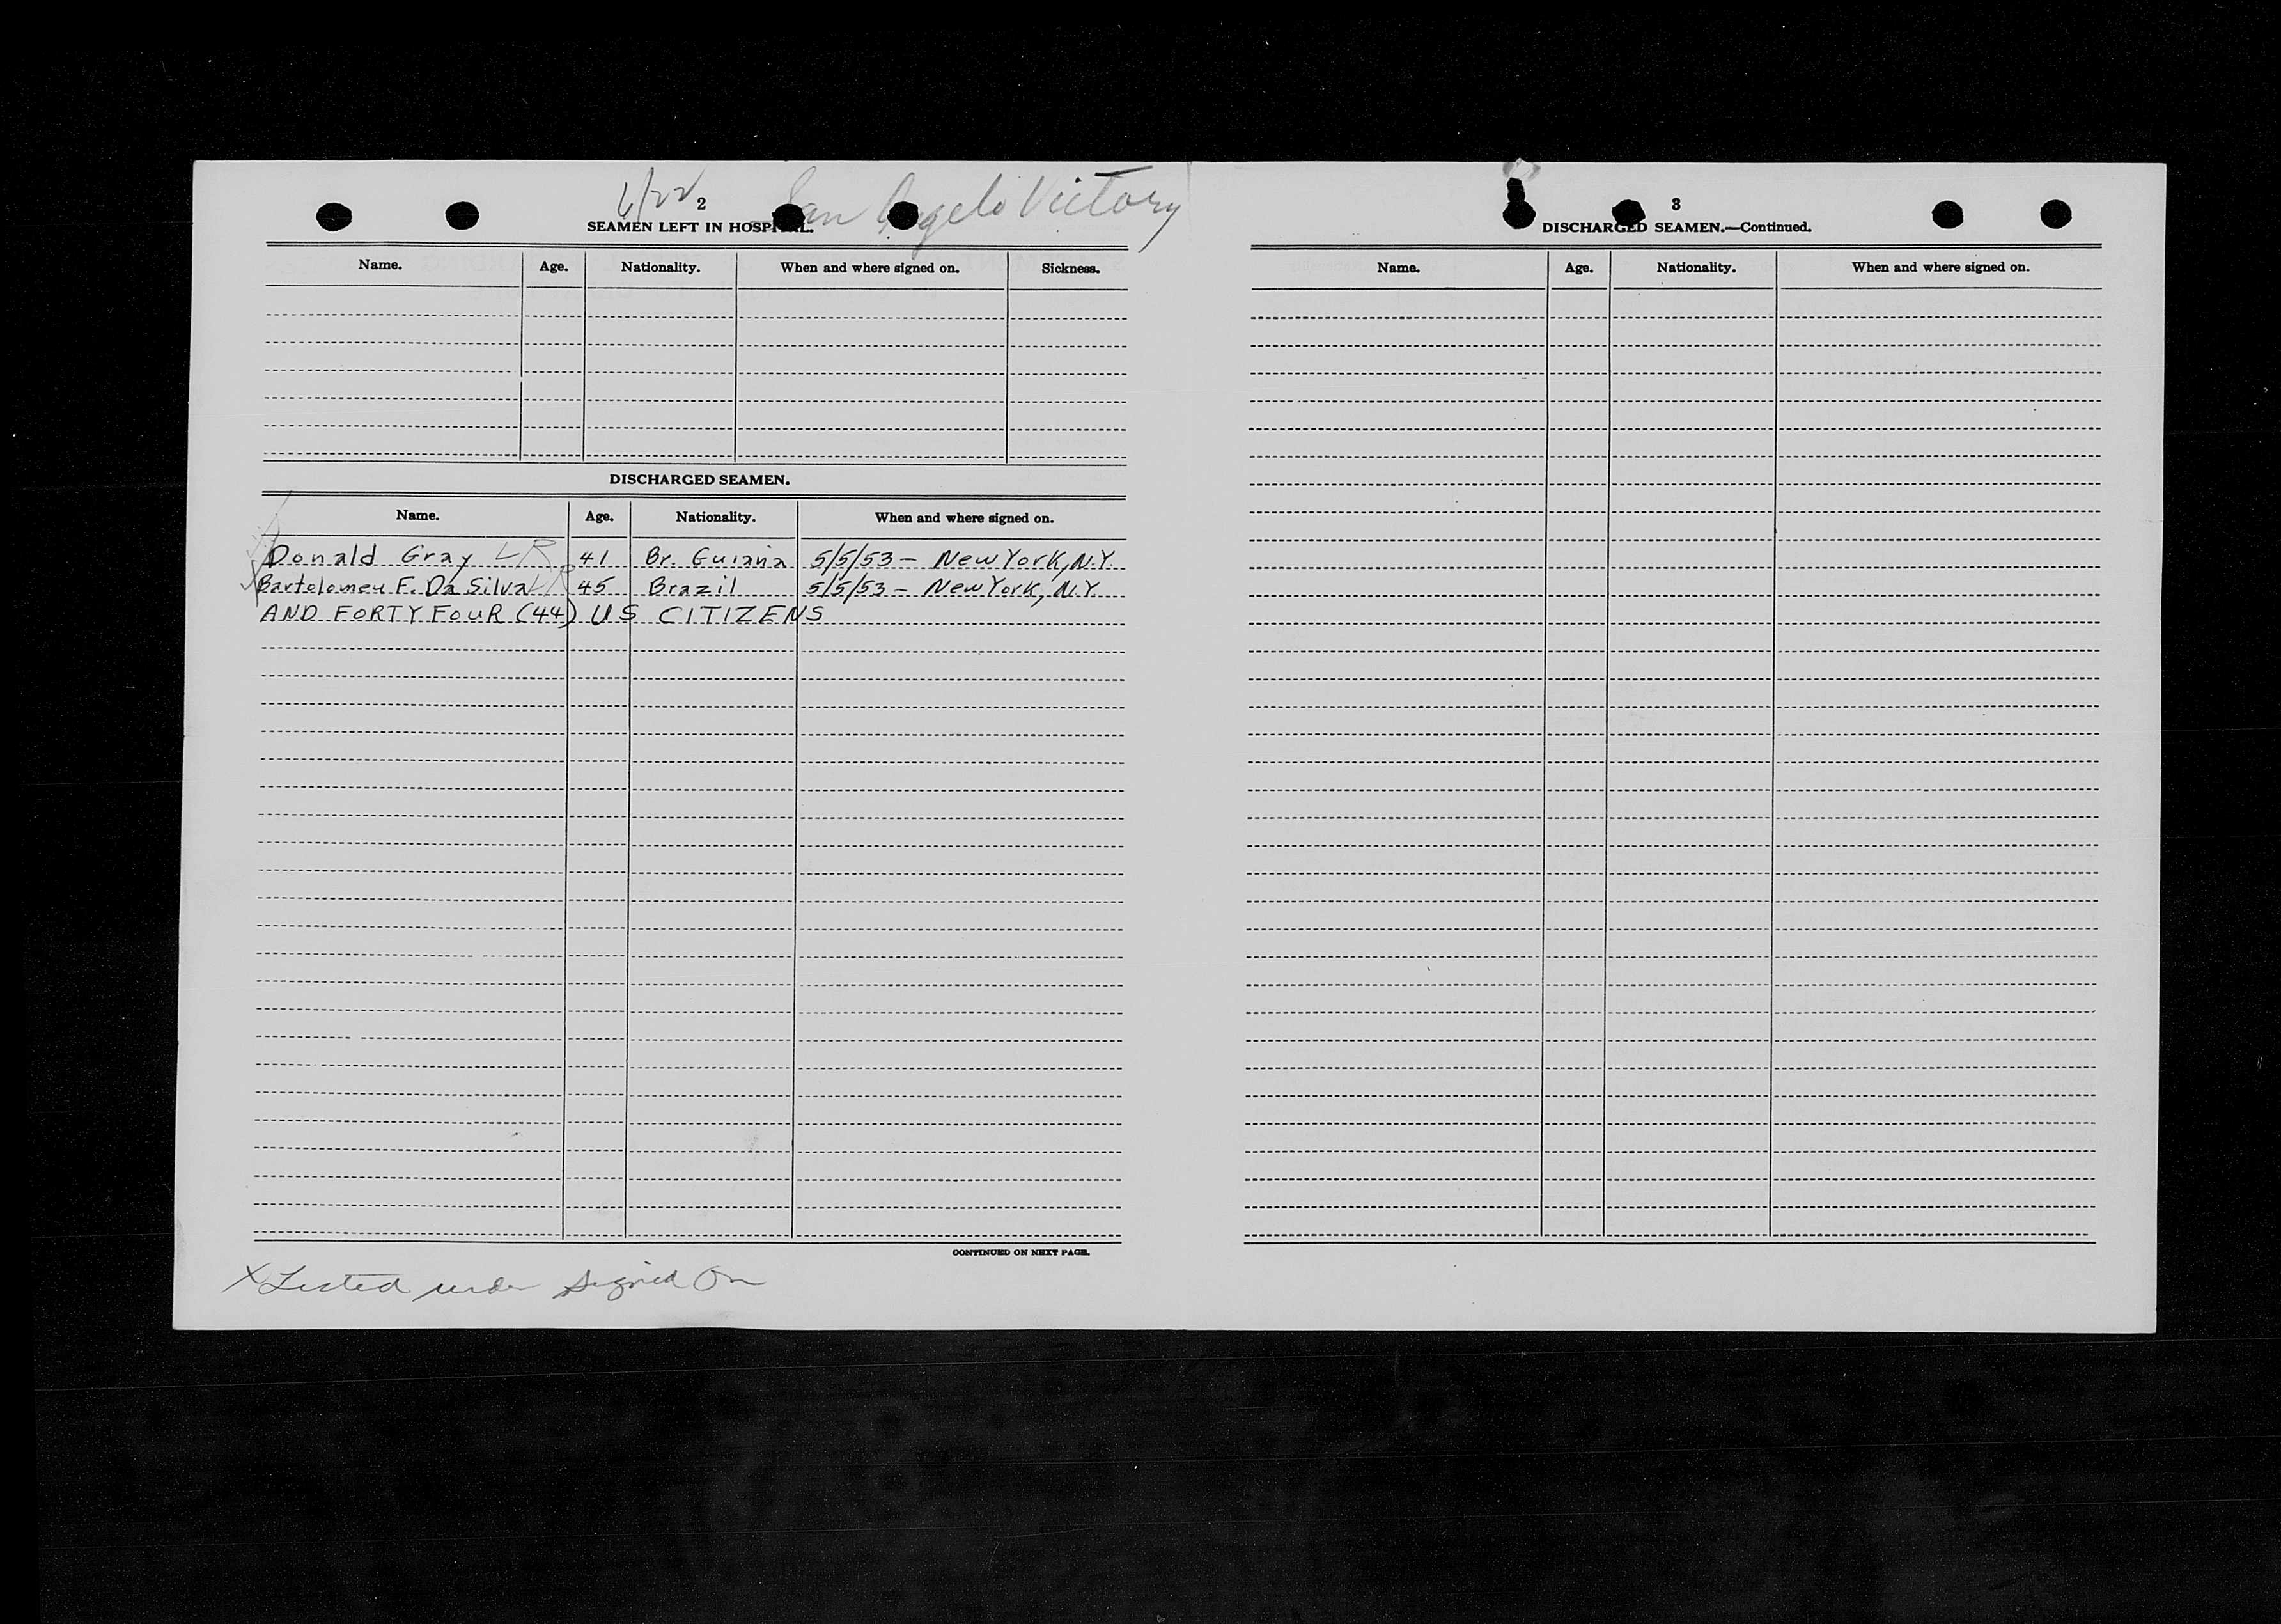 6/22 2 San Angelo Victory
SEAMEN LEFT IN HOSPITAL.
Name. Age. Nationality. When and where signed on. Sickness.
DISCHARGED SEAMEN.
Name. Age. Nationality. When and where signed on.
Donald Gray LR 41 Br. Guiana 5/5/53 - New York, N.Y.
Bartolomeu F. Da Silva LR 45 Brazil 5/5/53 - New York, N.Y.
AND FORTY FOUR (44) US CITIZENS
CONTINUED ON NEXT PAGE.
X Listed under signed on
3
DISCHARGED SEAMEN.—Continued.
Name. Age. Nationality. When and where signed on.